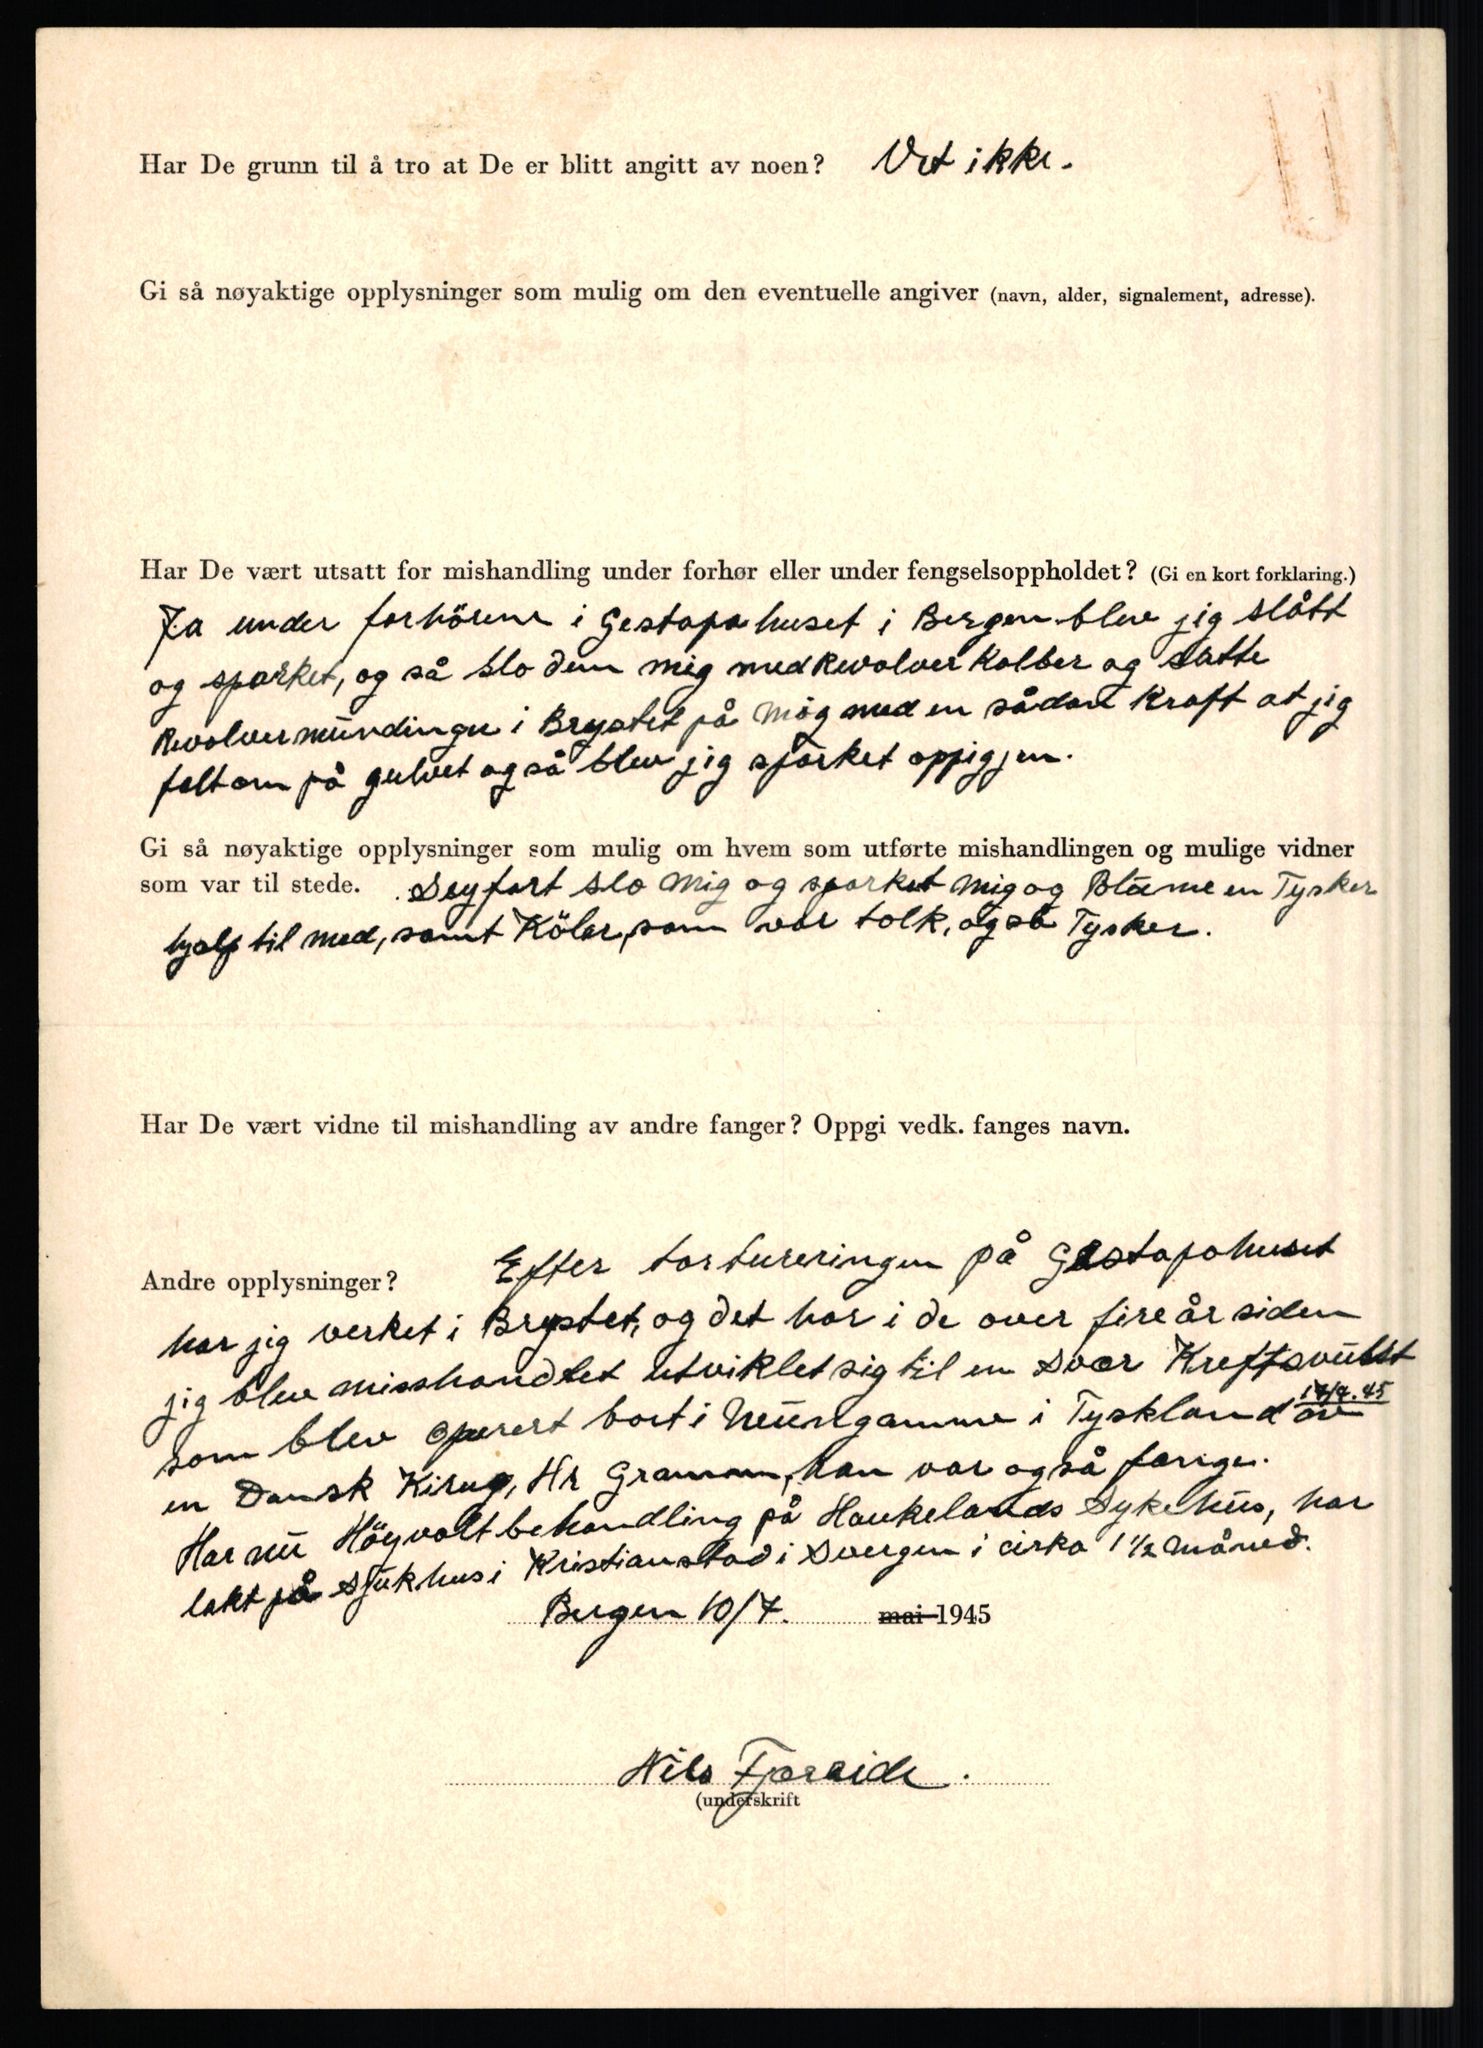 Har De grunn til å tro at De er blitt angitt av noen? Vet ikke.
Gi så nøyaktige opplysninger som mulig om den eventuelle angiver (navn, alder, signalement, adresse).
Har De vært utsatt for mishandling under forhør eller under fengselsoppholdet? (Gi en kort forklaring.)
Ja under forhörene i Gestapohuset i Bergen blev jig slått
og sparket, og så slo dem mig med Revolver Kolber og satte
Revolvermündingen i Brystet på mig med en sådan Kraft at jig
falt om på gulvet og så blev jig sparket opp igjen.
Gi så nøyaktige opplysninger som mulig om hvem som utførte mishandlingen og mulige vidner
som var til stede. Seyfart slo mig og sparket mig og Blüme en Tysker
hjalp til med, samt Köler, som var tolk, også Tysker.
Har De vært vidne til mishandling av andre fanger? Oppgi vedk. fanges navn.
Efter tortureringen på Gestapohuset
Andre opplysninger?
har jig verket i Brystet, og det har i de over fire år siden
jig blev misshandlet utviklet sig til en svær Kreftsvülst
17/4.45
som blev operert bort i Neüngamme i Tyskland av
en Dansk Kirug, Hr Gramm, han var også fange.
Har nü Höyvoltbehandling på Haukelands Sykehüs, har
lakt på Sjükhus i Kristianstad i Svergen i cirka 1 1/2 måned.
Bergen 10/7. mai 1945
Nils Fjæreide.
(underskrift